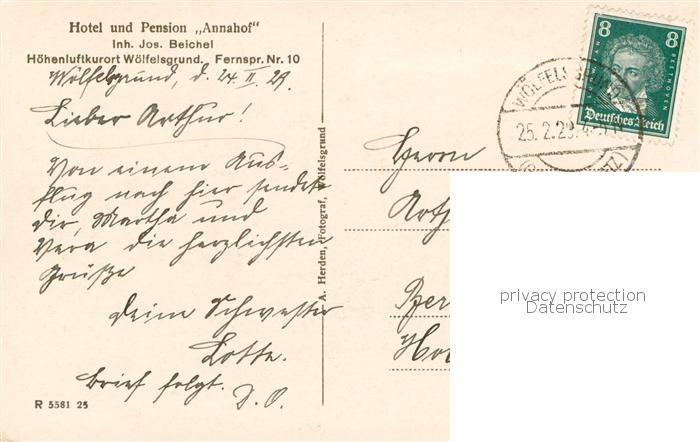 Hotel und Pension „Annahof"
Inh. Jos. Beichel
Höhenluftkurort Wölfelsgrund. Fernspr. Nr. 10
Wölfelsgrund, d. 24. II. 29.
Lieber Arthur!
Von einem Aus-
flug nach hier sendet
dir, Martha und
Vera die herzlichsten
Grüße
deine Schwester
Lotte.
Brief folgt. D. O.
R 5581 25
A. Herden, Fotograf, Wölfelsgrund
8 8
BEETHOVEN
Deutsches Reich
WÖLFELSGRUND
25.2.29
Herrn
privacy protection
Datenschutz